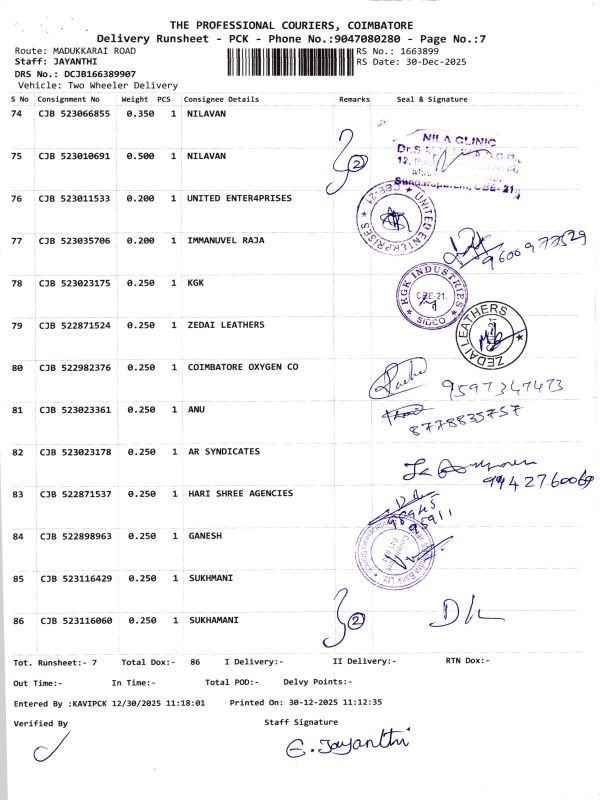 THE PROFESSIONAL COURIERS, COIMBATORE
Delivery Runsheet - PCK - Phone No.:9047080280 - Page No.:7
Route: MADUKKARAI ROAD RS No.: 1663899
Staff: JAYANTHI RS Date: 30-Dec-2025
DRS No.: DCJB166389907
Vehicle: Two Wheeler Delivery
S No Consignment No Weight PCS Consignee Details Remarks Seal & Signature
74 CJB 523066855 0.350 1 NILAVAN
NILA CLINIC
75 CJB 523010691 0.500 1 NILAVAN 2
Dr.S
12,
Sundarapuram, CBE- 21
76 CJB 523011533 0.200 1 UNITED ENTER4PRISES
UNITED ENTERPRISES CBE-21
77 CJB 523035706 0.200 1 IMMANUVEL RAJA
78 CJB 523023175 0.250 1 KGK
KGK INDUSTRIES CBE-21. SIDCO
79 CJB 522871524 0.250 1 ZEDAI LEATHERS
ZEDAI LEATHERS
80 CJB 522982376 0.250 1 COIMBATORE OXYGEN CO
9597347473
81 CJB 523023361 0.250 1 ANU
8778835757
82 CJB 523023178 0.250 1 AR SYNDICATES
9942760069
83 CJB 522871537 0.250 1 HARI SHREE AGENCIES
98945
95911
84 CJB 522898963 0.250 1 GANESH
Bank Ltd
85 CJB 523116429 0.250 1 SUKHMANI
86 CJB 523116060 0.250 1 SUKHAMANI 2
Tot. Runsheet:- 7 Total Dox:- 86 I Delivery:- II Delivery:- RTN Dox:-
Out Time:- In Time:- Total POD:- Delvy Points:-
Entered By :KAVIPCK 12/30/2025 11:18:01 Printed On: 30-12-2025 11:12:35
Verified By Staff Signature
E. Jayanthi